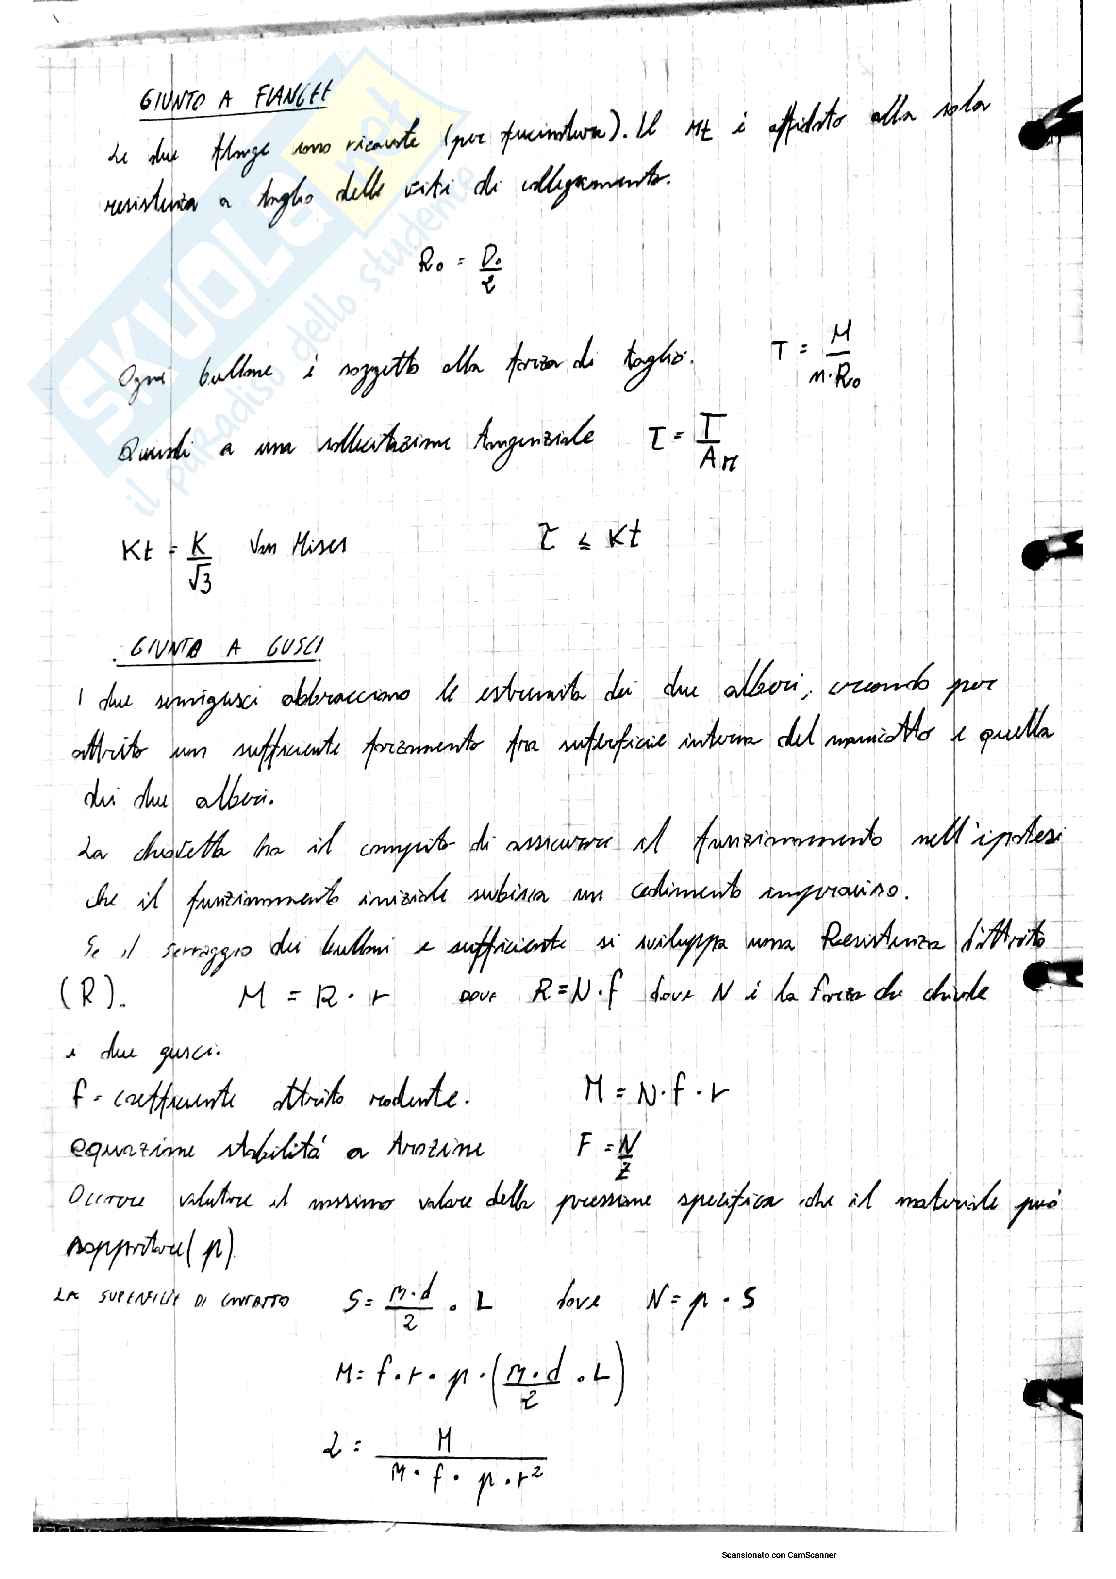 GIUNTO A FLANGE
Le due flange sono ricavate (per fucinatura). Il Mt è affidato alla sola
resistenza a taglio delle viti di collegamento.
R₀ = D₀/2
Ogni bullone è soggetto alla forza di taglio. T = M/(n·R₀)
Quindi a una sollecitazione tangenziale τ = T/A_M
Kt = K/√3 Von Mises τ ≤ Kt
GIUNTO A GUSCI
I due semigusci abbracciano le estremità dei due alberi, creando per
attrito un sufficiente forzamento fra superficie interna del manicotto e quella
dei due alberi.
La chiavetta ha il compito di assicurare il funzionamento nell'ipotesi
che il funzionamento iniziale subisca un cedimento improvviso.
Se il serraggio dei bulloni è sufficiente si sviluppa una Resistenza d'attrito
(R). M = R · r DOVE R=N·f dove N è la forza che chiude
i due gusci.
f = coefficiente attrito radente. M = N·f·r
equazione stabilità a trazione F = N/Z
Occorre valutare il massimo valore della pressione specifica che il materiale può
sopportare (p)
LA SUPERFICIE DI CONTATTO S = π·d/2 · L dove N = p · S
M = f·r·p·(π·d/2 · L)
L = M/(π·f·p·r²)
SKUOLA.net
il paradiso dello studente
Scansionato con CamScanner